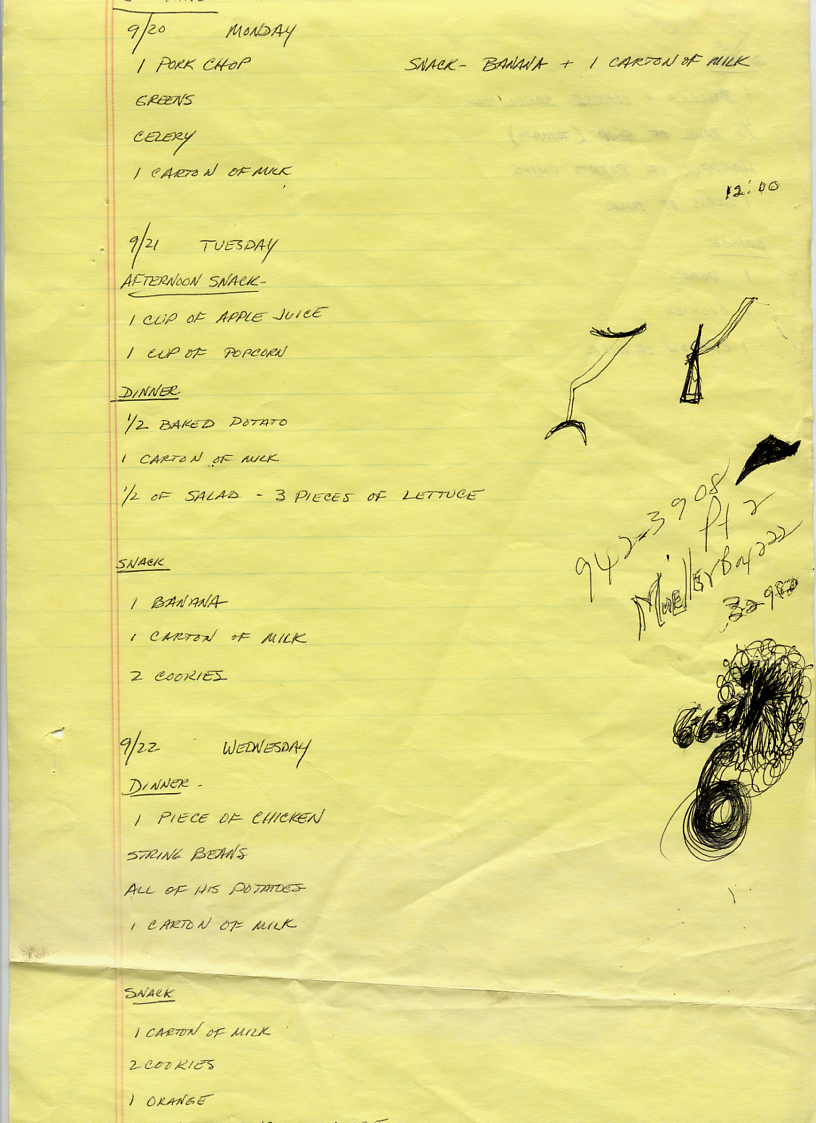 9/20 MONDAY
1 PORK CHOP SNACK- BANANA + 1 CARTON OF MILK
GREENS
CELERY
1 CARTON OF MILK
12:00
9/21 TUESDAY
AFTERNOON SNACK-
1 CUP OF APPLE JUICE
1 CUP OF POPCORN
DINNER
1/2 BAKED POTATO
1 CARTON OF MILK
1/2 OF SALAD - 3 PIECES OF LETTUCE
942-3908
Pt 2
Box 222
SNACK
1 BANANA
1 CARTON OF MILK
2 COOKIES
9/22 WEDNESDAY
DINNER -
1 PIECE OF CHICKEN
STRING BEANS
ALL OF HIS POTATOES
1 CARTON OF MILK
SNACK
1 CARTON OF MILK
2 COOKIES
1 ORANGE